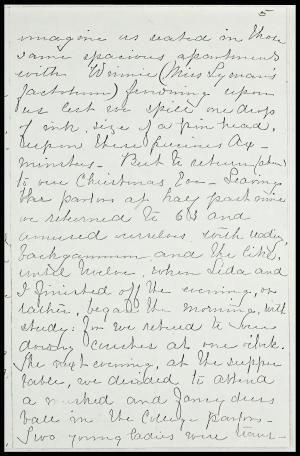 5
imagine us seated in those
same spacious apartments
with Winnie (Miss Lyman's
factotum) frowning upon
us lest we spill one drop
of ink, size of a pin head,
upon these precious Ax-
minsters. But to return
to our Christmas Eve - Leaving
the parlors at half past nine
we returned to 63 and
amused ourselves with reading,
backgammon and the like,
until twelve, when Lida and
I finished off the evening, or
rather, began the morning, with
study: for we retired to our
downy couches at one o'clk.
The next evening, at the supper
table, we decided to attend
a masked and fancy dress
ball in the College parlors -
Two young ladies were trans-